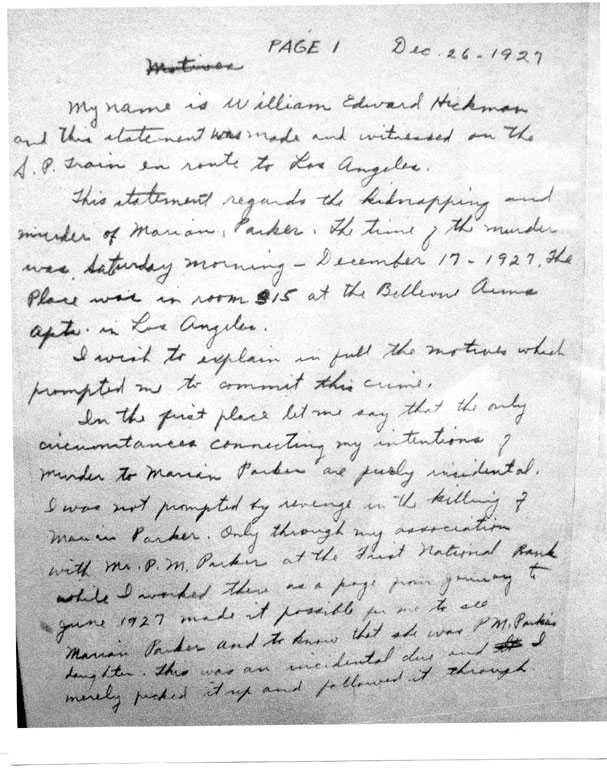 PAGE 1 Dec. 26-1927
Motives
My name is William Edward Hickman
and this statement was made and witnessed on the
S.P. Train en route to Los Angeles.
This statement regards the kidnapping and
murder of Marian Parker. The time of the murder
was Saturday morning - December 17-1927. The
Place was in room 315 at the Bellevue Arms
Apts. in Los Angeles.
I wish to explain in full the motives which
prompted me to commit this crime.
In the first place let me say that the only
circumstances connecting my intentions of
murder to Marian Parker are purly incidental.
I was not prompted by revenge in the killing of
Marian Parker. Only through my association
with Mr. P.M. Parker at the First National Bank
while I worked there as a page from January to
June 1927 made it possible for me to see
Marian Parker and to know that she was P.M. Parker's
daughter. This was an incidental clue and I
merely picked it up and followed it through.